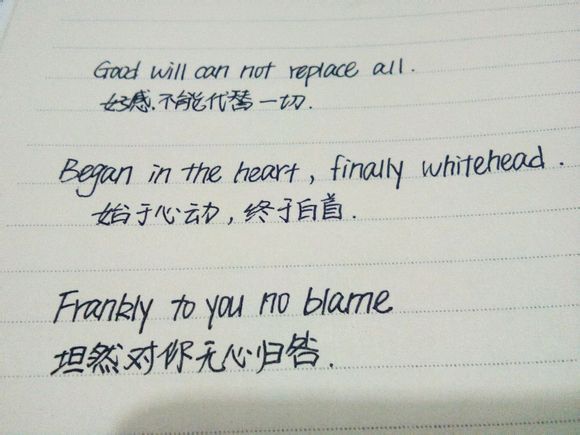 Good will can not replace all.
好感.不能代替一切.
Began in the heart, finally whitehead.
始于心动,终于白首.
Frankly to you no blame
坦然对你无心归咎.